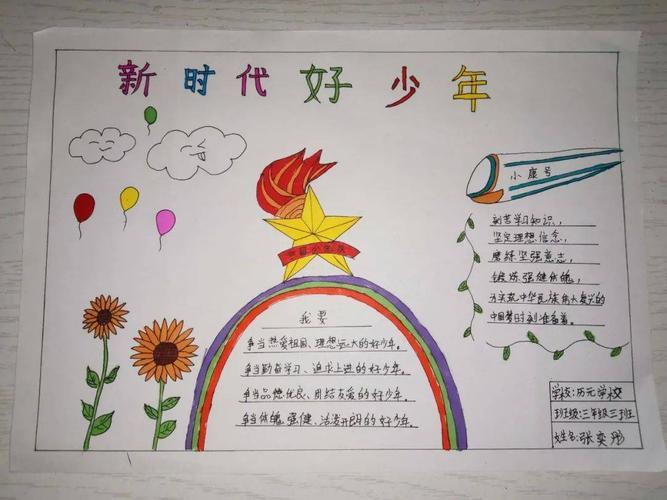 新时代好少年
小康号
中国少先队
刻苦学习知识，
坚定理想信念，
磨练坚强意志，
锻炼强健体魄，
为实现中华民族伟大复兴的
中国梦时刻准备着。
我要
争当热爱祖国、理想远大的好少年。
争当勤奋学习、追求上进的好少年。
争当品德优良、团结友爱的好少年。
争当体魄强健、活泼开朗的好少年。
学校：历元学校
班级：三年级三班
姓名：张奕彤